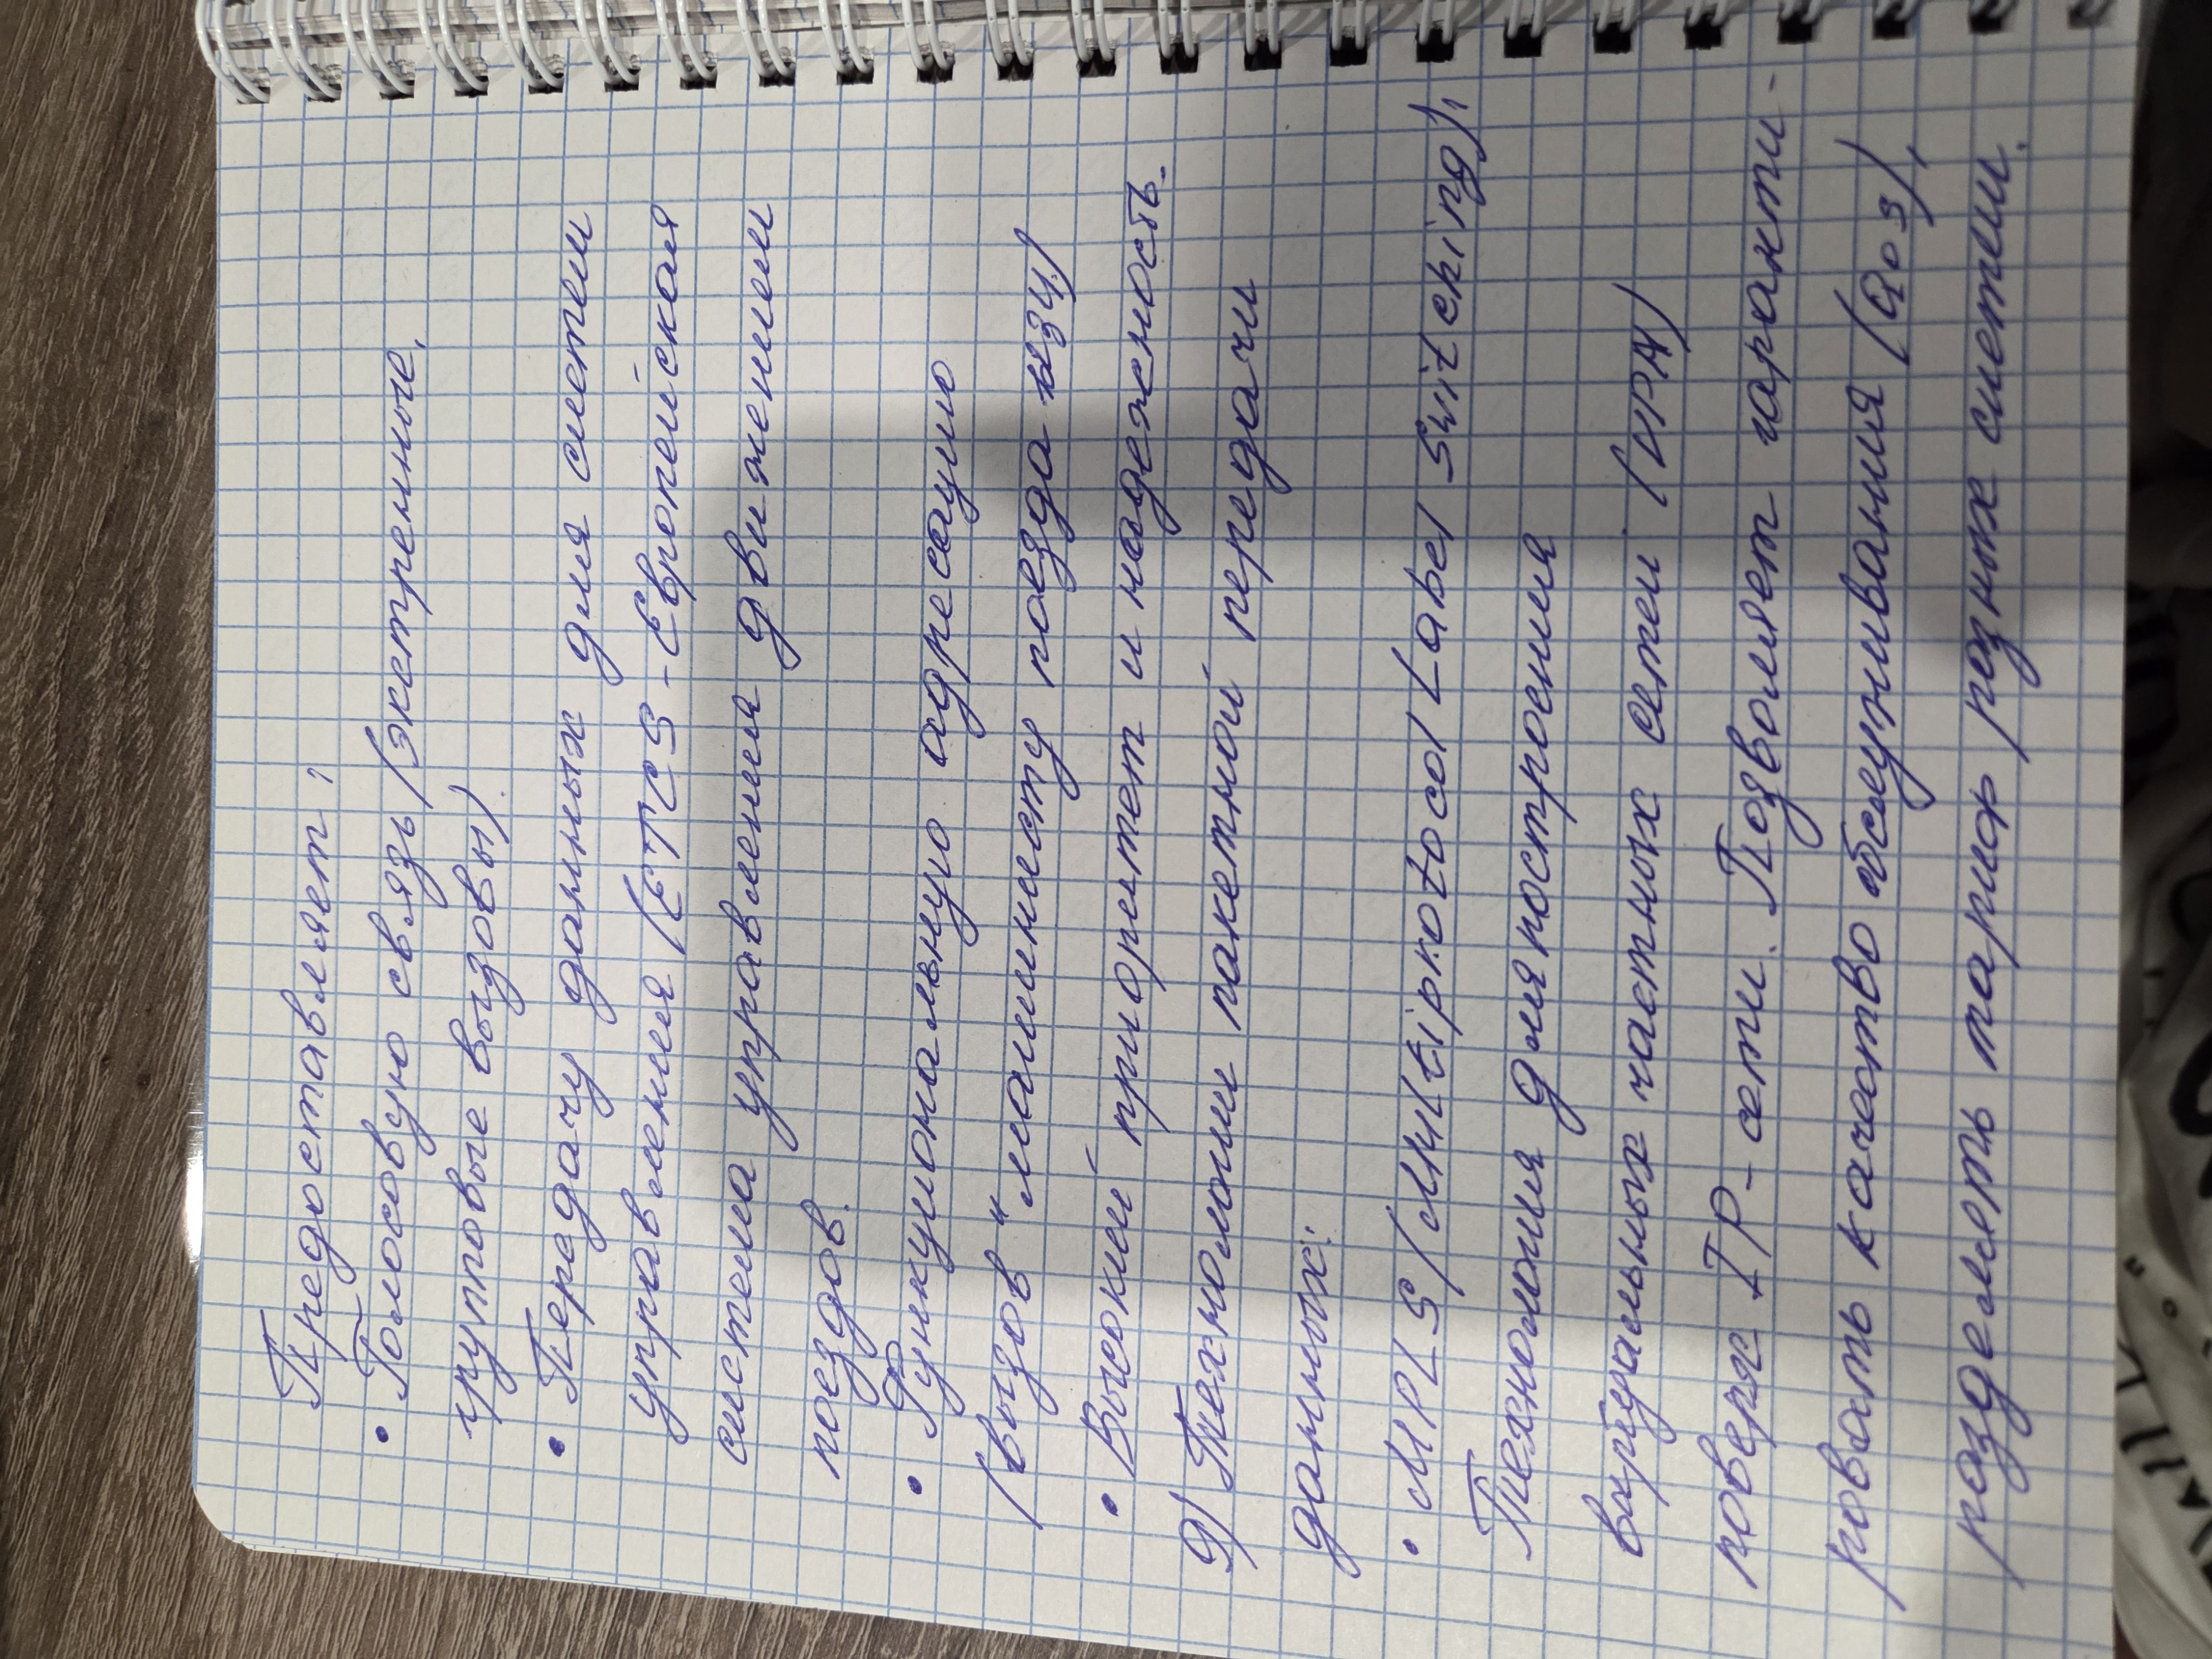 Предоставляет:
• Голосовую связь (экстренные,
групповые вызовы).
• Передачу данных для систем
управления (ETCS - Европейская
система управления движением
поездов.
• Функциональную адресацию
(вызов "машинисту поезда №34)
• Высокий приоритет и надежность.
д) Технологии пакетной передачи
данных:
• MPLS (Multiprotocol Label Switching),
Технология для построения
виртуальных частных сетей (VPN)
поверх IP-сети. Позволяет гаранти-
ровать качество обслуживания (QoS),
разделять трафик разных систем.